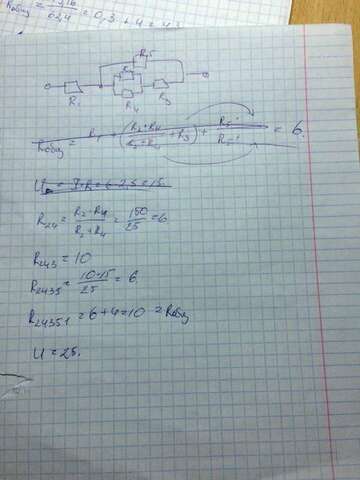 Rобщ = 0,16/0,4 = 0,3 + 4 = 4,3
R5
R2
R1 R4 R3
Rобщ = R1 + (R2·R4/R2+R4 + R3) + R5·/R5+ = 6.
U = I·R = 6·2,5 = 15.
R24 = R2·R4/R2+R4 = 150/25 = 6
R243 = 10
R2435 = 10·15/25 = 6
R24351 = 6+4=10 = Rобщ
U = 25.